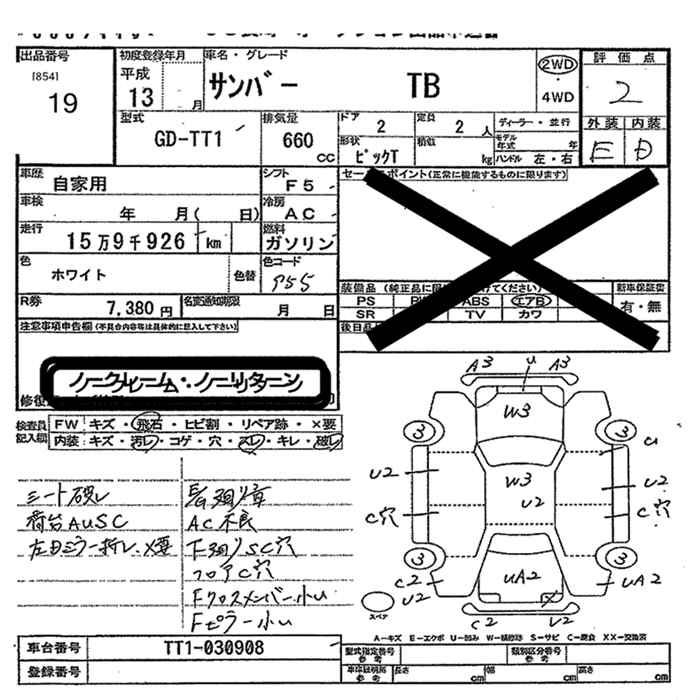 出品番号
[854]
19
初度登録年月
平成
13 月
車名・グレード
サンバー TB
2WD
4WD
評価点
2
外装 内装
E D
型式
GD-TT1
排気量
660 CC
ドア
2
定員
2 人
ディーラー・並行
形状
ピックT
積数
kg
モデル年式 年
ハンドル 左・右
車歴
自家用
シフト
F5
セールスポイント(正常に機能するものに限ります)
車検
年 月( 日)
冷房
AC
走行
15万9千926 km
燃料
ガソリン
色
ホワイト
色替
色コード
P55
装備品(純正品に限
けてください)
新車保証書
PS ABS エアB
SR TV カワ
有・無
R券
7,380円
名変通知期限
月 日
後日品
注意事項申告欄(不具合内容等は具体的に記入して下さい)
ノークレーム・ノーリターン
修復
検査員記入欄
FW キズ・飛石・ヒビ割・リペア跡・×要
内装:キズ・汚レ・コゲ・穴・スレ・キレ・破レ
シート破レ
荷台AUSC
左ドミラー折レ、×要
AC不良
下廻りSC穴
フロアC穴
Fクロスメンバー小U
Fピラー小U
A3 U A3
W3
3 3
U
U2 W3 U2
U2
C穴 C穴
3 3
C2 UA2 UA2
U2
C2 U2
スペア
A-キズ E-エクボ U-凹み W-補修跡 S-サビ C-腐食 XX-交換済
車台番号
TT1-030908
型式指定番号
参考
類別区分番号
参考
登録番号
車体証明局
参考
長さ cm
幅 cm
高さ cm